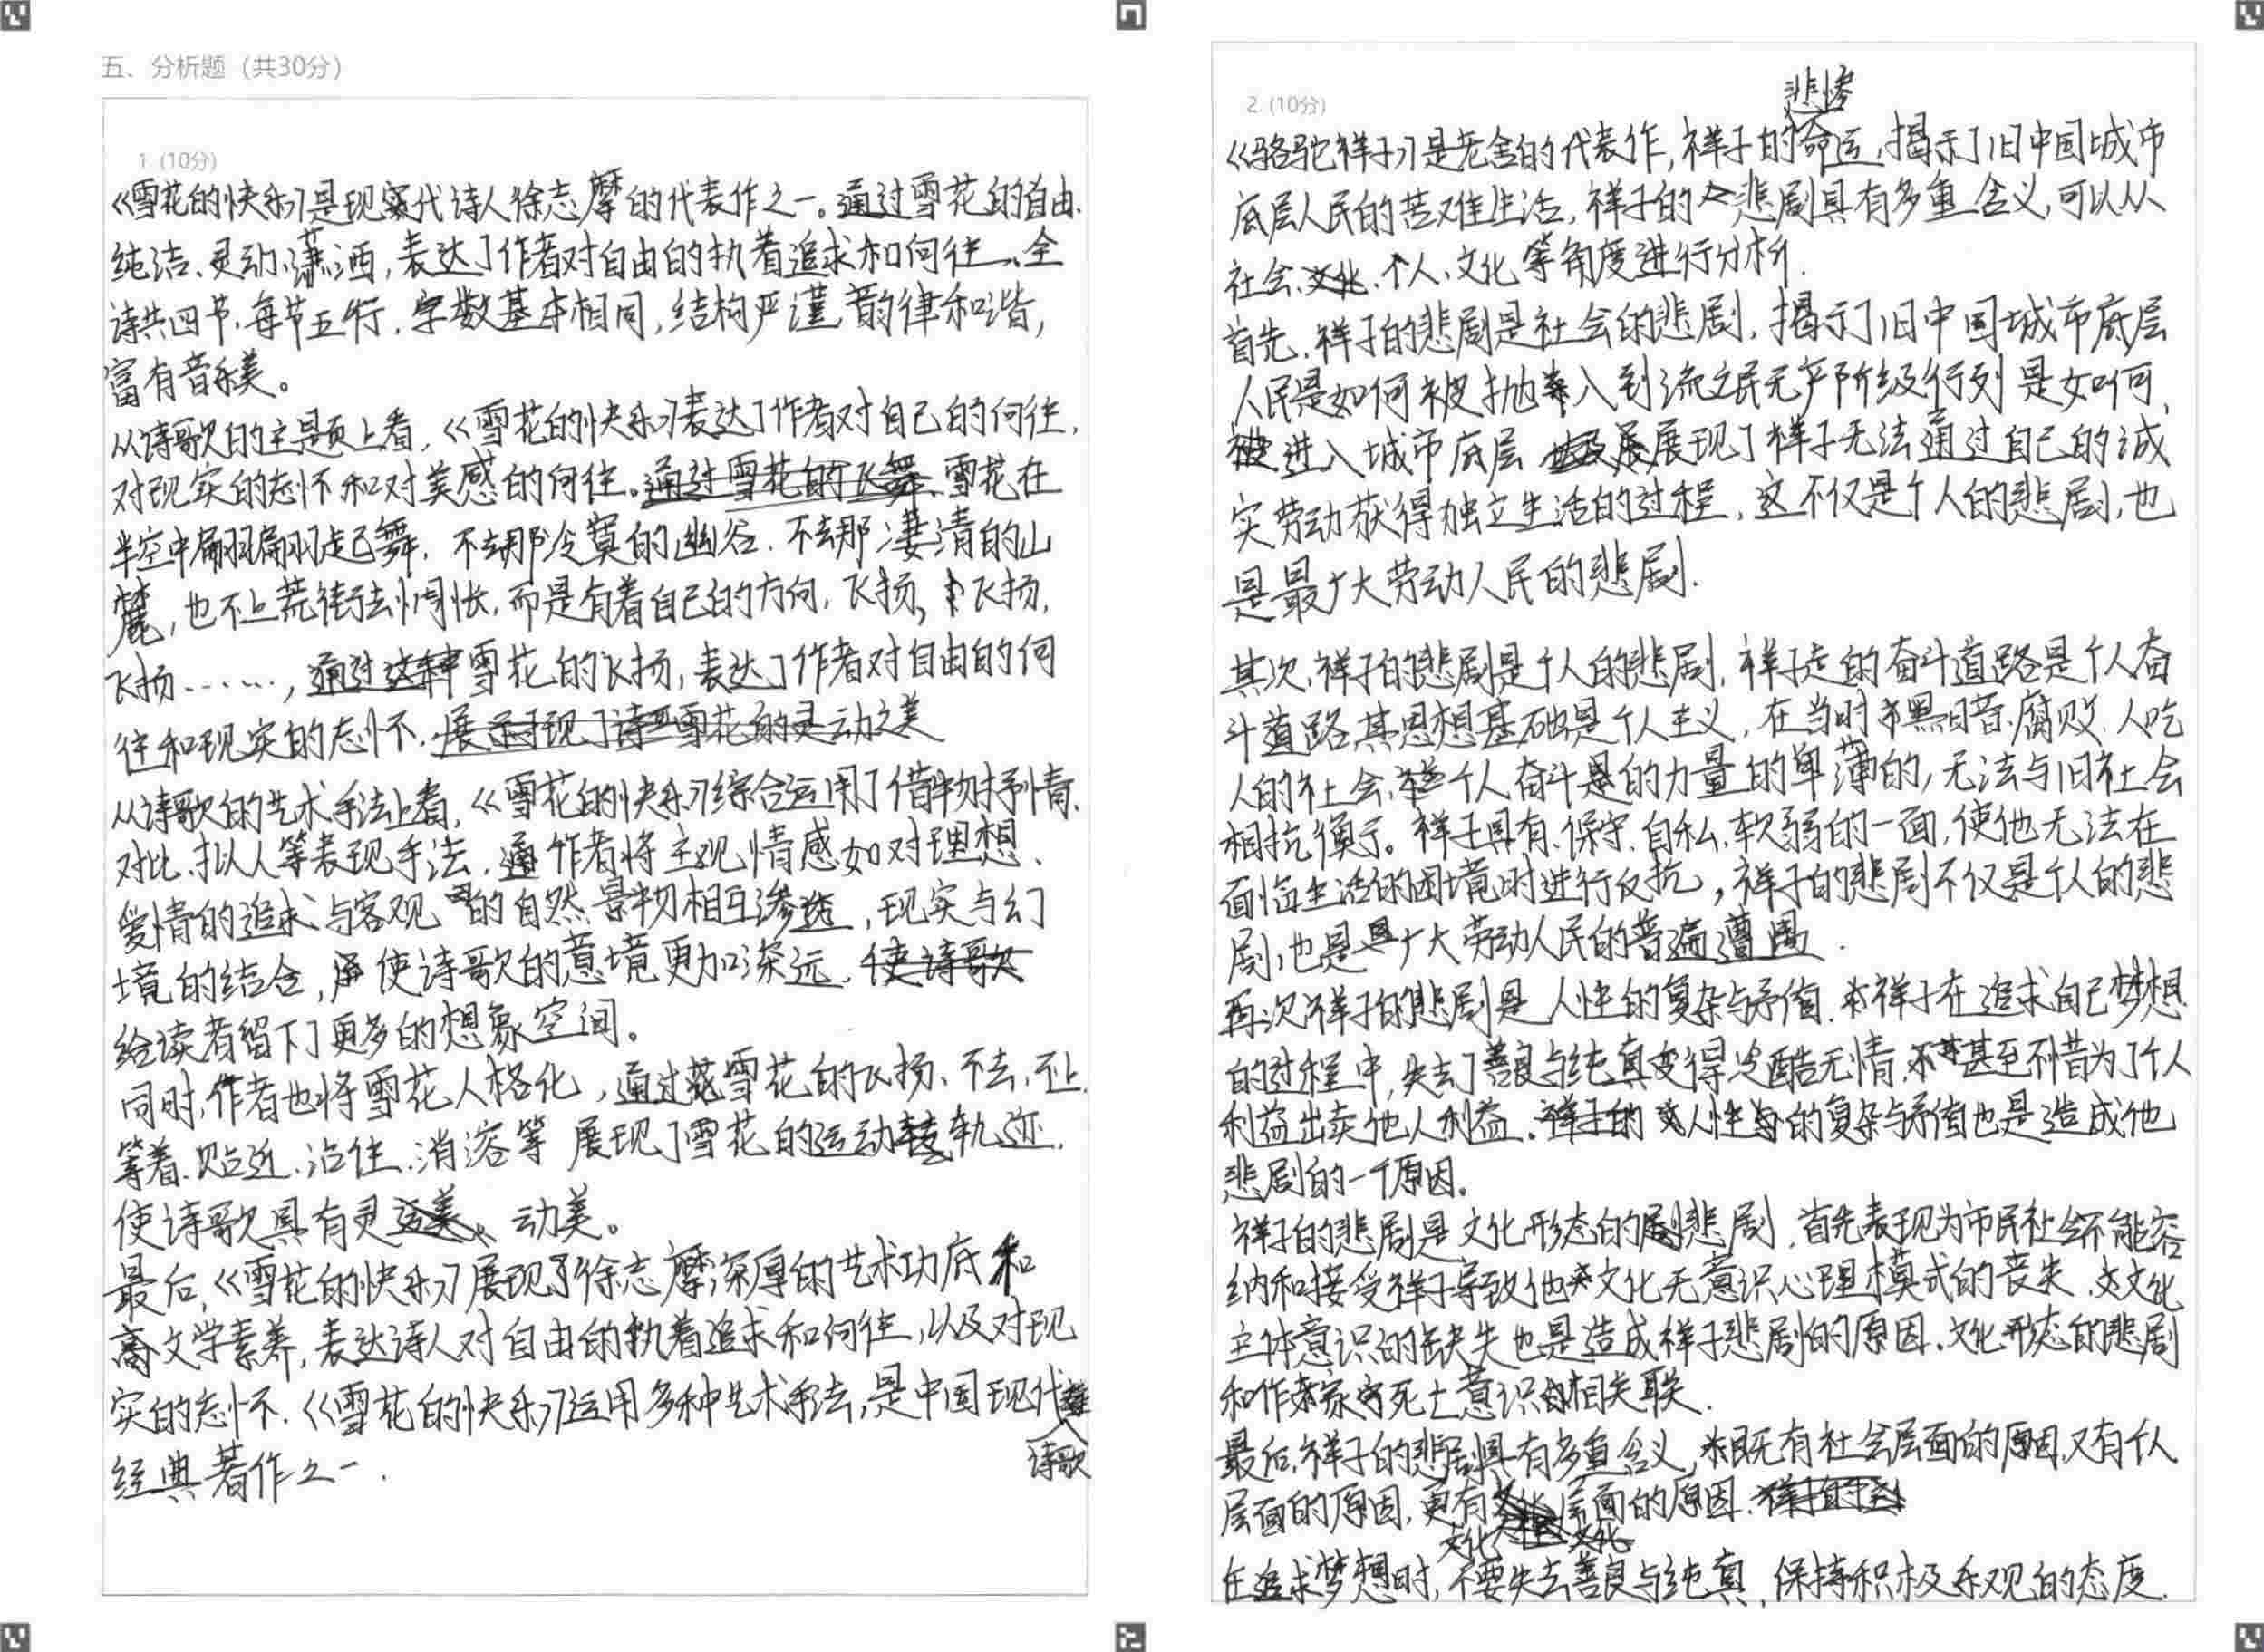 五、分析题（共30分）
1. (10分)
《雪花的快乐》是现代诗人徐志摩的代表作之一。通过雪花的自由、
纯洁、灵动、潇洒，表达了作者对自由的执着追求和向往。全
诗共四节，每节五行，字数基本相同，结构严谨 韵律和谐，
富有音乐美。
从诗歌的主题上看，《雪花的快乐》表达了作者对自己的向往，
对现实的忐忑和对美感的向往。雪花在
半空中翩翩起舞，不去那冷寞的幽谷，不去那凄清的山
麓，也不上荒街去惆怅，而是有着自己的方向，飞扬，飞扬，
飞扬……，雪花的飞扬，表达了作者对自由的向
往和现实的忐忑.
从诗歌的艺术手法上看，《雪花的快乐》综合运用了借物抒情、
对比、拟人等表现手法，作者将主观情感如对理想、
爱情的追求与客观的自然景物相互渗透，现实与幻
境的结合，使诗歌的意境更加深远，
给读者留下了更多的想象空间。
同时，作者也将雪花人格化，通过雪花的飞扬、不去、不上、
等着、贴近、沾住、消溶等 展现了雪花的运动轨迹，
使诗歌具有灵动美。
最后，《雪花的快乐》展现了徐志摩深厚的艺术功底和
高文学素养，表达诗人对自由的执着追求和向往，以及对现
实的忐忑.《雪花的快乐》运用多种艺术手法，是中国现代诗歌
经典著作之一.
2. (10分)
《骆驼祥子》是老舍的代表作，祥子的悲惨命运，揭示了旧中国城市
底层人民的苦难生活，祥子的悲剧具有多重含义，可以从
社会、个人、文化等角度进行分析.
首先，祥子的悲剧是社会的悲剧，揭示了旧中国城市底层
人民是如何被抛入到流民无产阶级行列 是如何
进入城市底层 展现了祥子无法通过自己的诚
实劳动获得独立生活的过程，这不仅是个人的悲剧，也
是最广大劳动人民的悲剧.
其次，祥子的悲剧是个人的悲剧，祥子走的奋斗道路是个人奋
斗道路 其思想基础是个人主义，在当时黑暗、腐败、人吃
人的社会，个人奋斗的力量的单薄的，无法与旧社会
相抗衡。祥子具有保守、自私、软弱的一面，使他无法在
面临生活的困境时进行反抗，祥子的悲剧不仅是个人的悲
剧，也是广大劳动人民的普遍遭
再次祥子的悲剧是人性的复杂与矛盾，祥子在追求自己梦想
的过程中，失去了善良与纯真变得冷酷无情，甚至不惜为了个人
利益出卖他人利益，人性的复杂与矛盾也是造成他
悲剧的一个原因。
祥子的悲剧是文化形态的悲剧，首先表现为市民社会不能容
纳和接受祥子导致他文化无意识心理模式的丧失，文化
主体意识的缺失也是造成祥子悲剧的原因，文化形态的悲剧
和作家死亡意识相关联.
最后，祥子的悲剧具有多重含义，既有社会层面的原因，又有个人
层面的原因，更有文化层面的原因.
在追求梦想时，不要失去善良与纯真，保持积极乐观的态度.